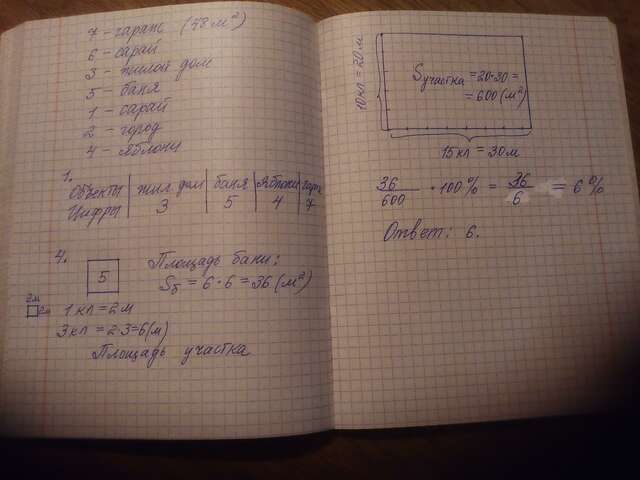 7 - гараж (48 м²)
6 - сарай
3 - жилой дом
5 - баня
1 - сарай
2 - город
4 - яблони
1.
Объекты | жил. дом | баня | Яблони | гараж
Цифры | 3 | 5 | 4 | 7
4.
5
Площадь бани:
S₅ = 6·6 = 36 (м²)
2м
2м
1 кл = 2м
3 кл = 2·3=6(м)
Площадь участка
10 кл = 20 м
S участка = 20·30 =
= 600 (м²)
15 кл = 30 м
36/600 · 100% = 36/6 = 6%
Ответ: 6.